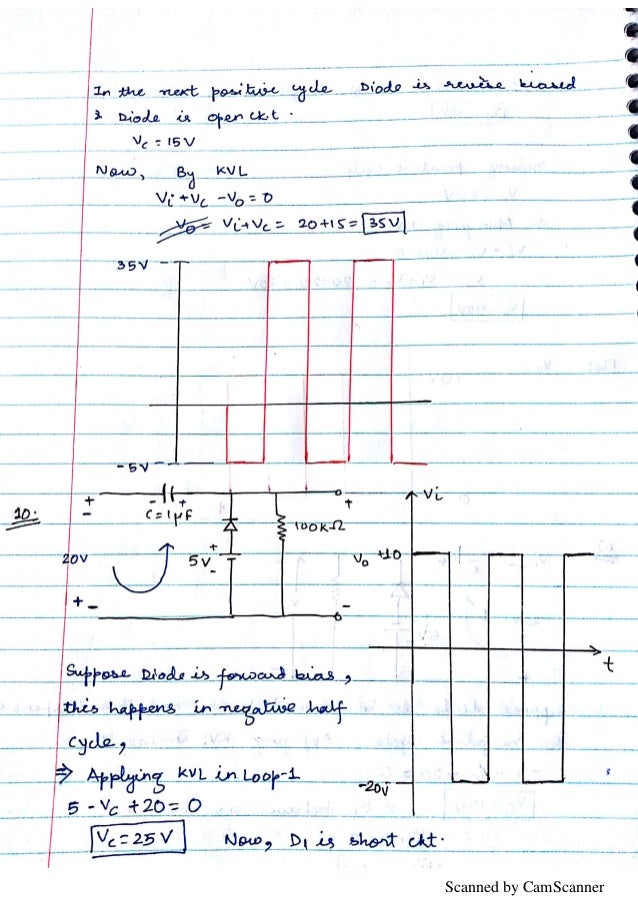 In the next positive cycle Diode is reverse biased
& Diode is open ckt.
Vc = 15V
Now, By KVL
Vi + Vc - Vo = 0
Vo = Vi + Vc = 20 + 15 = 35V
35V
-5V
20:
+ - - + + Vi
C = 1μF
100KΩ
20V + 5V - Vo +10
+ - -
t
Suppose Diode is forward bias,
this happens in negative half
cycle,
⇒ Applying KVL in Loop-1
-20V
5 - Vc + 20 = 0
Vc = 25V Now, D1 is short ckt.
Scanned by CamScanner